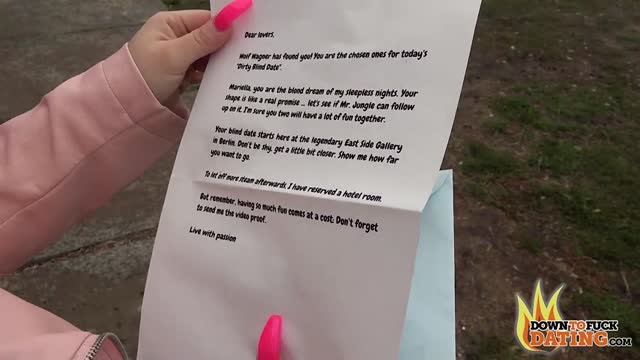 Dear lovers,
Wolf Wagner has found you! You are the chosen ones for today's
"Dirty Blind Date".
Mariella, you are the blood dream of my sleepless nights. Your
shape is like a real promise ... let's see if Mr. Jungle can follow
up on it. I'm sure you two will have a lot of fun together.
Your blind date starts here at the legendary East Side Gallery
in Berlin. Don't be shy, get a little bit closer. Show me how far
you want to go.
To let off more steam afterwards, I have reserved a hotel room.
But remember, having so much fun comes at a cost: Don't forget
to send me the video proof.
Live with passion
DOWN TO FUCK
DATING.COM